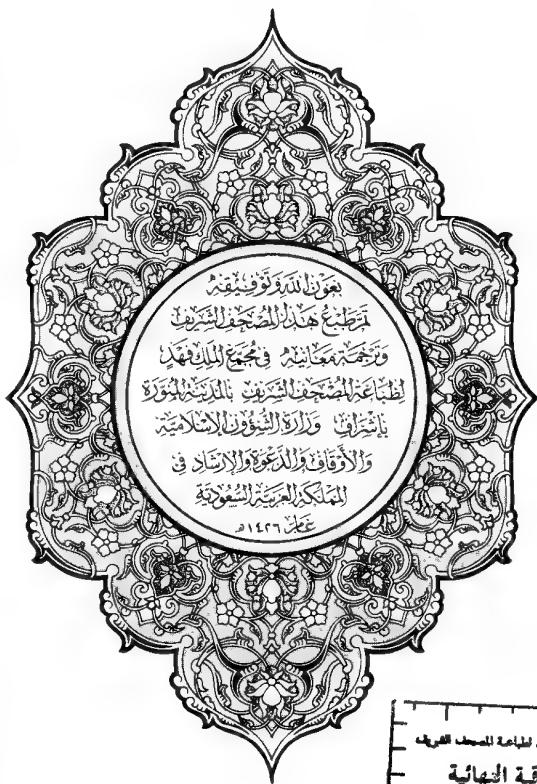 بِعَوْنِ اللَّهِ وَتَوْفِيقِهِ
تَمَّ طَبْعُ هَذَا المُصْحَفِ الشَّرِيفِ
وَتَرْجَمَة مَعَانِيهِ فِي مُجَمَّع المَلِك فَهَد
لِطِبَاعَةِ المُصْحَفِ الشَّرِيفِ بِالمَدِينَةِ المُنَوَّرَة
بِإِشْرَافِ وَزَارَة الشُّؤُونِ الإِسْلَامِيَّةِ
وَالأَوْقَافِ وَالدَّعْوَةِ وَالإِرْشَادِ فِي
المَمْلَكَةِ العَرَبِيَّةِ السُّعُودِيَّةِ
عَام ١٤٢٦هـ
لطباعة المصحف الشريف
النهائية